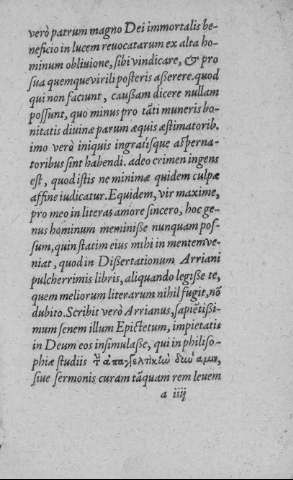 verò patrum magno Dei immortalis be-
neficio in lucem reuocatarum ex alta ho-
minum obliuione, sibi vindicare, & pro
sua quemque virili posteris asserere. quod
qui non faciunt, caussam dicere nullam
possunt, quo minus pro tāti muneris bo-
nitatis diuinæ parum æquis æstimatorib.
imo verò iniquis ingratisque aspernа-
toribus sint habendi. adeo crimen ingens
est, quod istis ne minimæ quidem culpæ
affine iudicatur. Equidem, vir maxime,
pro meo in literas amore sincero, hoc ge-
nus hominum meminisse nunquam pos-
sum, quin statim eius mihi in mentem ve-
niat, quod in Dissertationum Arriani
pulcherrimis libris, aliquando legisse te,
quem meliorum literarum nihil fugit, nō
dubito. Scribit verò Arrianus, sapiētissi-
mum senem illum Epictetum, impietatis
in Deum eos insimulasse, qui in philoso-
phiæ studiis τὴν ἀπαγγελτικὴν δύναμιν,
siue sermonis curam tāquam rem leuem
a iiij